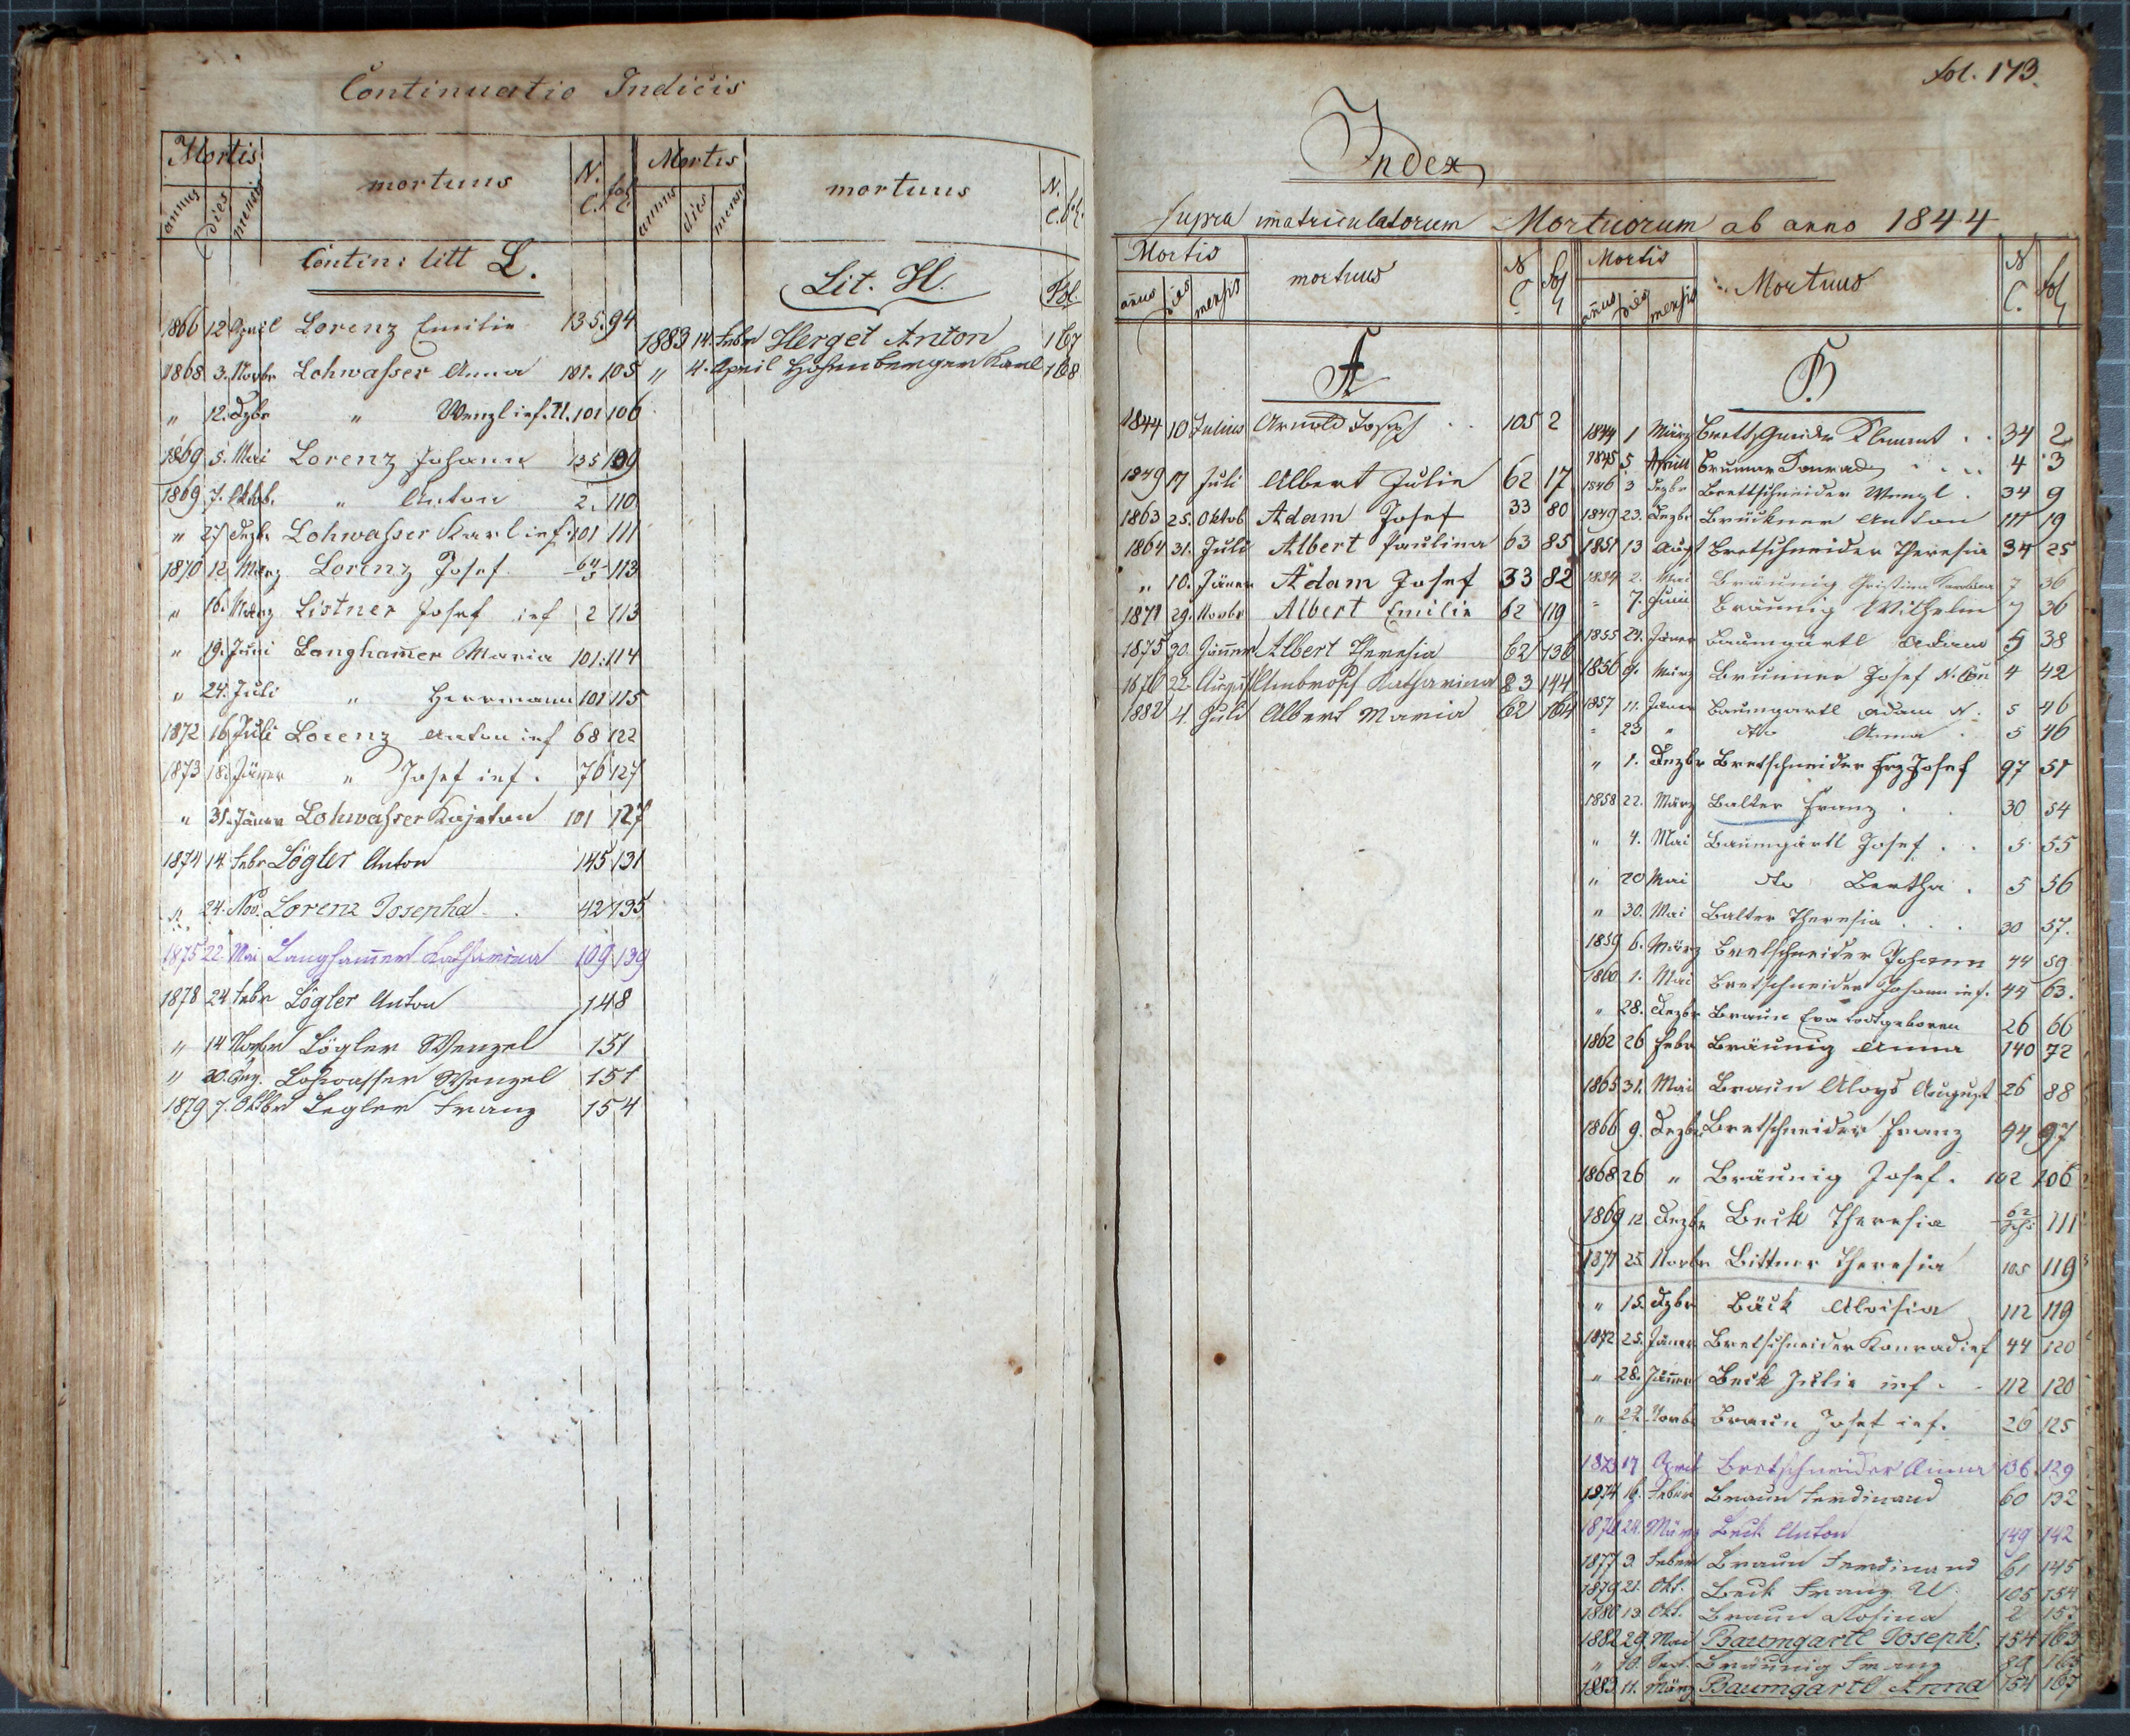 Continuatio Indicis
Mortis mortuus N. C. fol. Mortis mortuus N. C. fol.
annus dies mensis annus dies mensis
Contin: litt L.
1866 12 April Lorenz Emilie 135. 94
1868 3. Novbr Lohwasser Anna 101. 105
" 12. Dzbr " Wenzl inf. 101 106
1869 5. Mai Lorenz Johann 135 109
1869 7. Oktob. " Anton 2. 110
" 27 Dezbr Lohwasser Karl inf. 101 111
1870 12 März Lorenz Josef 64/5 113
" 16. März Listner Josef inf 2 113
" 19. Juni Langham̄er Maria 101. 114
" 24. Juli " Herrmann 101 115
1872 16 Juli Lorenz Anton inf 68 122
1873 18. Jäner " Josef inf. 76 127
" 31. Jäner Lohwasser Kajetan 101 127
1874 14 Febr Lögler Anton 145 131
" 24. Nov. Lorenz Josepha 42 135
1875 22. Mai Langham̄er Katharina 109 139
1878 24 Febr Lögler Anton 148
" 14 Novbr Lögler Wenzel 151
" 30. Lohwasser Wenzel 151
1879 7. Oktbr Legler Franz 154
Lit. H. Fol.
1883 14. Febr Herget Anton 167
" 4. April Hohenberger Karl 168
fol. 173.
Index
supra imatriculatorum Mortuorum ab anno 1844
Mortis mortuus N C fol Mortis Mortuus N C. fol
annus dies mensis annus dies mensis
A
1844 10 Julius Arnold Joseph . . 105 2
1849 17 Juli Albert Julie 62 17
1863 25. Oktob Adam Josef 33 80
1864 31. Juli Albert Paulina 63 85
" 10. Jäner Adam Josef 33 82
1871 29. Novbr Albert Emilie 62 119
1875 30. Jänner Albert Theresia 62 136
1876 22. August Ambrosch Katharina 23 144
1882 4. Juli Albert Maria 62 164
B
1844 1 März Brettschneider Klement . . 34 2
1845 5. April Brumer Konrad . . . 4 3
1846 3 Dezbr Brettschneider Wenzl . 34 9
1849 23. Dezbr Brückner Anton 111 19
1851 13 Augst Bretschneider Theresia 34 25
1854 2. Mai Bräunig Christina 7 36
" 7. Juni Bräunig Wilhelm 7 36
1855 29. Jäner Baumgärtl Adam 5 38
1856 9. März Brunner Josef 4 42
1857 11. Jäner Baumgartl Adam 5 46
" 23 " dto Anna . 5 46
" 1. Dezbr Bretschneider Frz Josef 97 51
1858 22. März Balter Franz . . 30 54
" 4. Mai Baumgärtl Josef . . 5 55
" 20 Mai dto Bertha . 5 56
" 30. Mai Balter Theresia . . . 30 57.
1859 6. März Bretschneider Johann 44 59
1860 1. Mai Bretschneider Johann inf. 44 63.
" 28. Dezbr Braun Eva todtgeboren 26 66
1862 26 Febr Bräunig Anna 140 72
1865 31. Mai Braun Aloys August 26 88
1866 9. Dezbr Bretschneider Franz 44 97
1868 26 " Bräunig Josef. 102 106
1869 12. Dezbr Beck Theresia 62 111
1871 25. Novbr Bittner Theresia 105 119
" 15. Dzbr Bäck Aloisia 112 119
1872 25. Jäner Bretschneider Konrad inf 44 120
" 28. Jänner Beck Julie inf. . 112 120
" 22. Novbr Braun Josef inf. 26 125
1873 17 April Bretschneider Anna 136. 129
1874 16. Feber Braun Ferdinand 60 132
1876 24. März Beck Anton 149 142
1877 9. Feber Braun Ferdinand 61 145
1879 21. Okt. Beck Franz 105 154
1880 13. Okt. Braun Rosina 2 157
1882 29. Mai Baumgartl Joseph. 154 163
" 10. Sept. Bräunig Franz 89 165
1883 11. März Baumgartl Anna 154 167